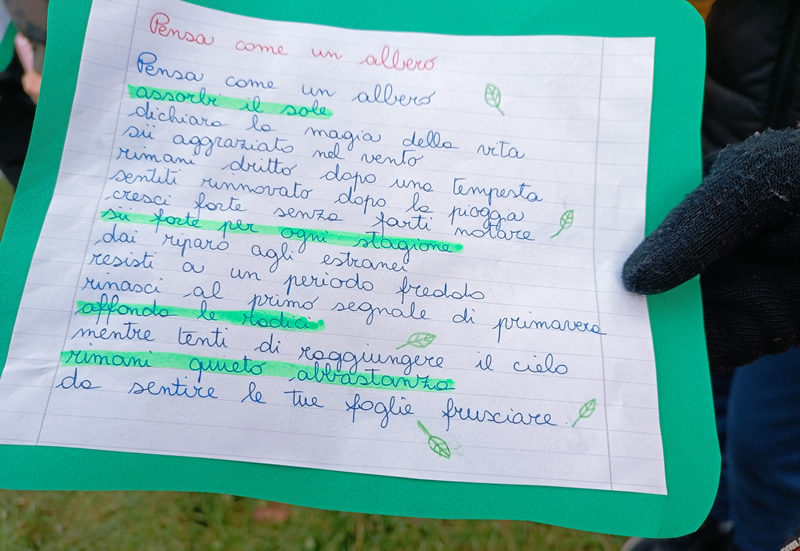 Pensa come un albero
Pensa come un albero
assorbi il sole
dichiara la magia della vita
sii aggraziato nel vento
rimani dritto dopo una tempesta
sentiti rinnovato dopo la pioggia
cresci forte senza farti notare
sii forte per ogni stagione
dai riparo agli estranei
resisti a un periodo freddo
rinasci al primo segnale di primavera
affonda le radici
mentre tenti di raggiungere il cielo
rimani quieto abbastanza
da sentire le tue foglie frusciare.